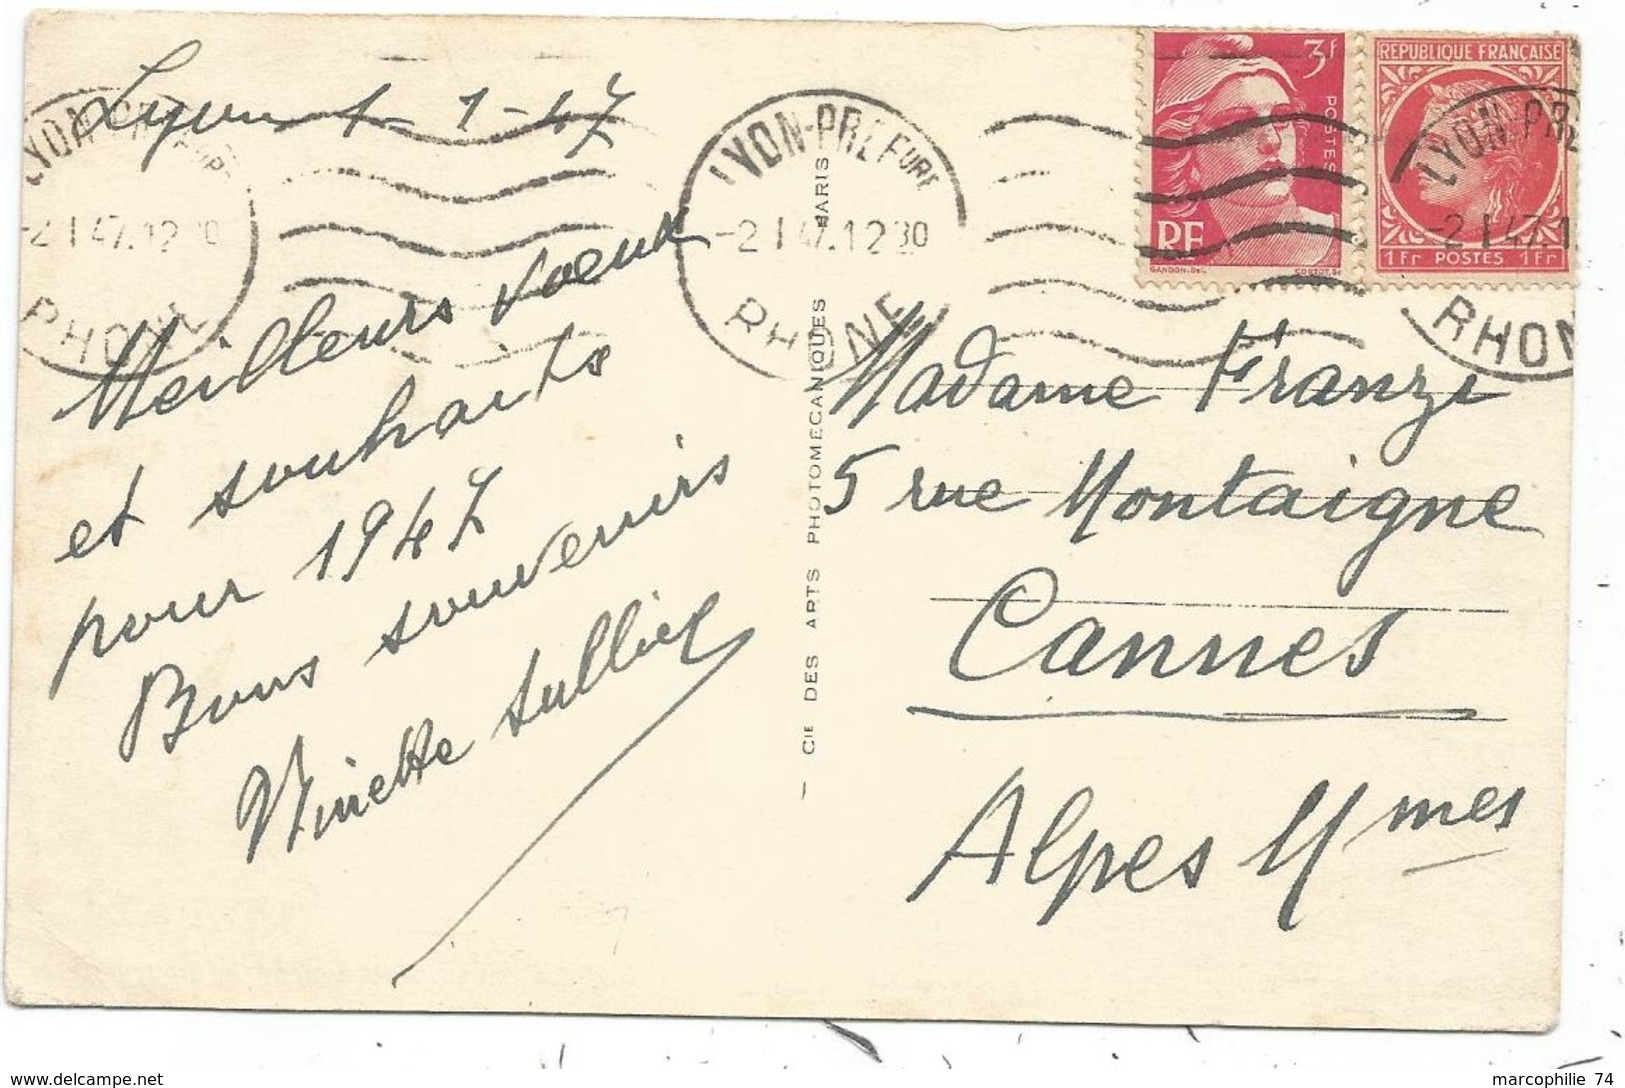 Lyon 1-1-47
Meilleurs voeux
et souhaits
pour 1947
Bons souvenirs
Ninette
LYON-PREFURE
-2 I 47.12 30
RHONE
LYON-PREFURE
-2 I 47.12 30
RHONE
3f
POSTES
RF
GANDON.DEL.
CORTOT.SC
REPUBLIQUE FRANÇAISE
1Fr POSTES 1Fr
LYON-PRE
-2 I 47.1
RHON
CIE DES ARTS PHOTOMECANIQUES PARIS
Madame Franzi
5 rue Montaigne
Cannes
Alpes Mmes
delcampe.net
marcophilie 74